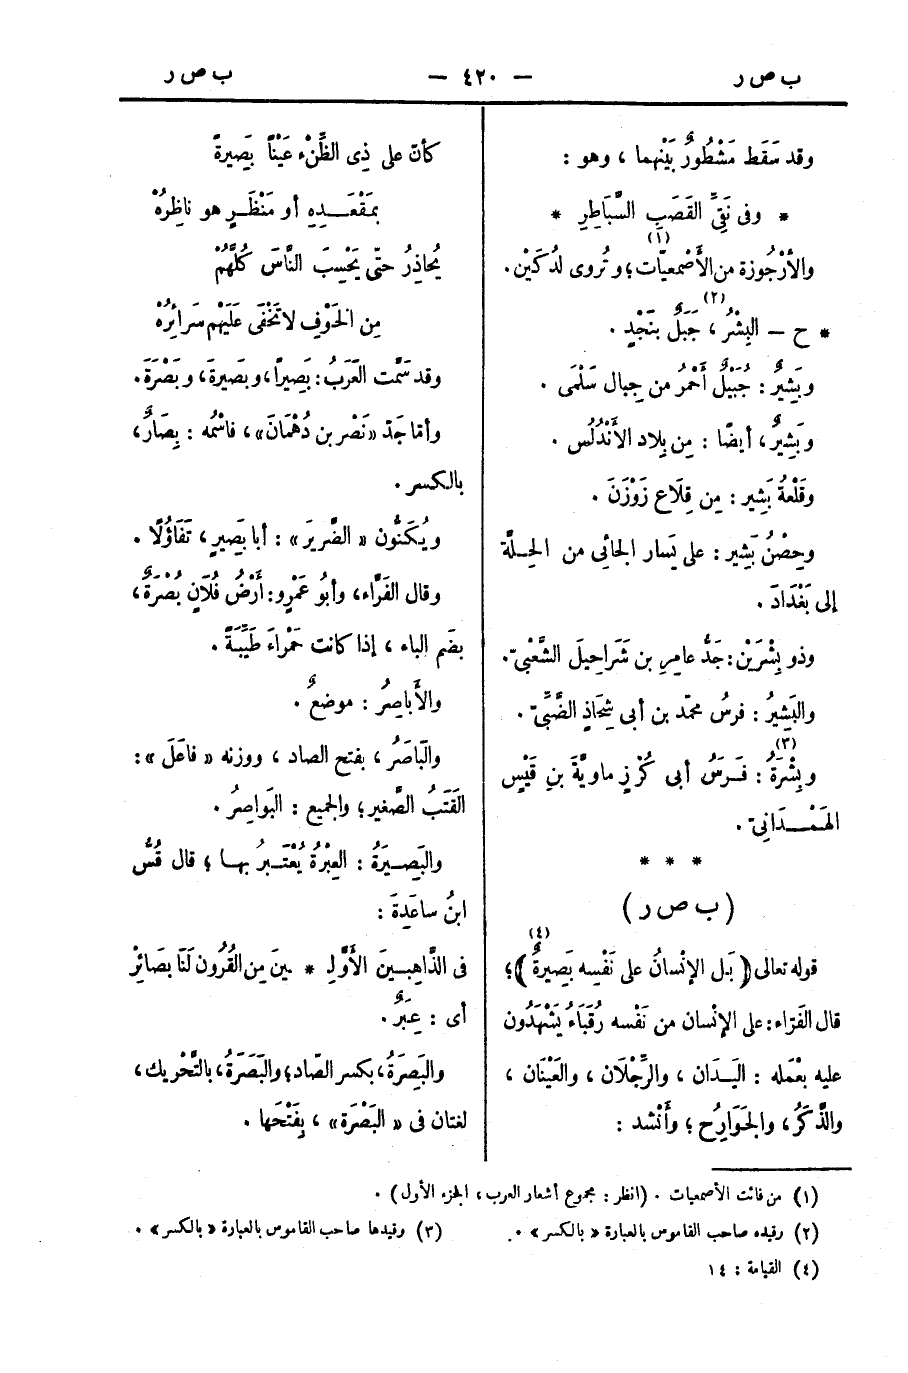 ب ص ر — ٤٢٠ — ب ص ر
وقد سَقَط مَشْطُورٌ بَيْنهما ، وهو :
* وفى نَقِىِّ القَصَبِ السَّبَاطِرِ *
والأُرْجُوزة من الأَصْمعيّات(١)؛ وتُروى لدُكَيْن.
* ح – البِشْرُ ، جَبَلٌ بنَجْدٍ(٢) .
وبَشِيرٌ : جُبَيْلٌ أَحْمُر من جِبال سَلْمَى .
وبَشِيرٌ، أيضًا : مِن بِلاد الأَنْدُلُس .
وقَلْعةُ بَشِير : مِن قِلَاع زَوْزَنَ .
وحِصْنُ بَشِير : على يَسار الجائِى من الحِلَّة
إلى بَغْدَادَ .
وذو بِشْرَيْن: جَدُّ عامِرِ بن شَرَاحِيلَ الشَّعْبىّ.
والبَشِيرُ : فرسُ محمّد بن أبى شِحَاذٍ الضَّبِّىّ .
وبِشْرَةُ(٣) : فَرَسُ أبى كُرْزٍ ماويَّةَ بنِ قَيْسٍ
الهَمْدَانِىّ .
* * *
( ب ص ر )
قوله تعالى ﴿ بَلِ الإنْسانُ على نَفْسِه بَصِيرةٌ ﴾(٤)؛
قال الفَرّاء: على الإنْسان من نَفْسه رُقَبَاءُ يَشْهَدُون
عليه بعَمَله : اليَدَان ، والرِّجْلَان ، والعَيْنَان ،
والذَّكَرُ، والجَوَارِح ؛ وأَنْشد :
كأنّ على ذِى الظِّنْء عَيْنًا بَصِيرةً
بمَقْعَدِهِ أو مَنْظَرٍ هو ناظِرُهْ
يُحاذِرُ حتّى يَحْسِبَ النَّاسَ كُلَّهُمْ
مِن الخَوْفِ لا تَخْفَى عَلَيْهم سَرائِرُهْ
وقد سَمَّت العَرَبُ : بَصِيراً، وبَصِيرةَ، وبَصْرَةَ.
وأمّا جَدّ «نَصْر بن دُهْمَانَ»، فاسْمُه : بِصَارٌ،
بالكسر .
ويُكَنُّون « الضَّريرَ» : أبا بَصِيرٍ، تَفَاؤُلًا .
وقال الفَرَّاء، وأبُو عَمْرٍو: أَرْضُ فُلَانٍ بُصْرَةٌ،
بضَم الباء ، إذا كانت حَمْراءَ طَيِّبَةً .
والأَباصِرُ : موضعٌ .
والبَاصَرُ ، بفتح الصاد ، ووزنه « فاعَلَ »:
القَتَبُ الصَّغير؛ والجميع : البَواصِرُ .
والبَصِيرَةُ : العِبْرةُ يُعْتَبَرُ بها ؛ قال قُسُّ
ابنُ ساعَدِةَ :
فى الذَّاهِبِينَ الأَوَّلِـ * ـينَ مِن القُرُون لَنَا بَصَائِرْ
أى : عِبَرٌ .
والبَصِرَةُ، بكسر الصّاد؛ والبَصَرَةُ، بالتَّحْريك،
لغتان فى « البَصْرَة» ، بِفَتْحها .
(١) من فائت الأصمعيات . (انظر : مجموع أشعار العرب ، الجزء الأول) .
(٢) وقيده صاحب القاموس بالعبارة « بالكسر » . (٣) وقيدها صاحب القاموس بالعبارة « بالكسر » .
(٤) القيامة : ١٤